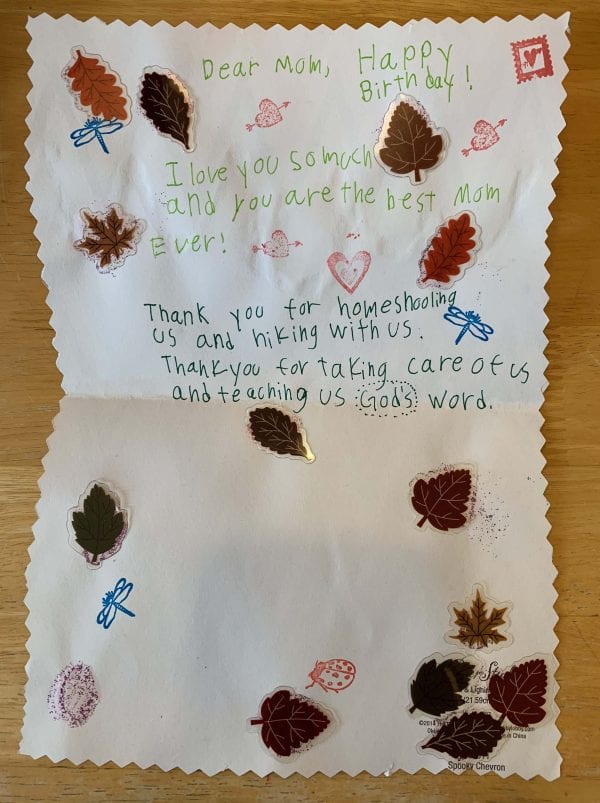 Dear Mom, Happy
Birthday!
I love you so much
and you are the best Mom
Ever!
Thank you for homeshooling
us and hiking with us.
Thankyou for taking care of us
and teaching us God's word.
& Lightn
(21.59cm
©2014
in China
Spooky Chevron